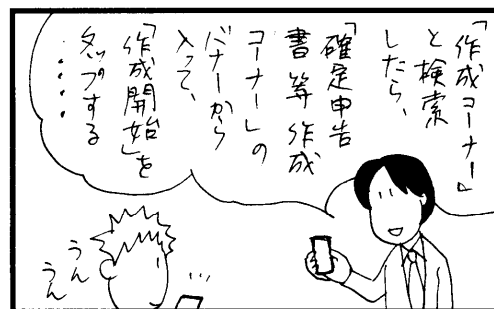 「作成コーナー」
と検索
したら、
「確定申告
書等作成
コーナー」の
バナーから
入って、
「作成開始」を
タップする
・・・・
うん
うん